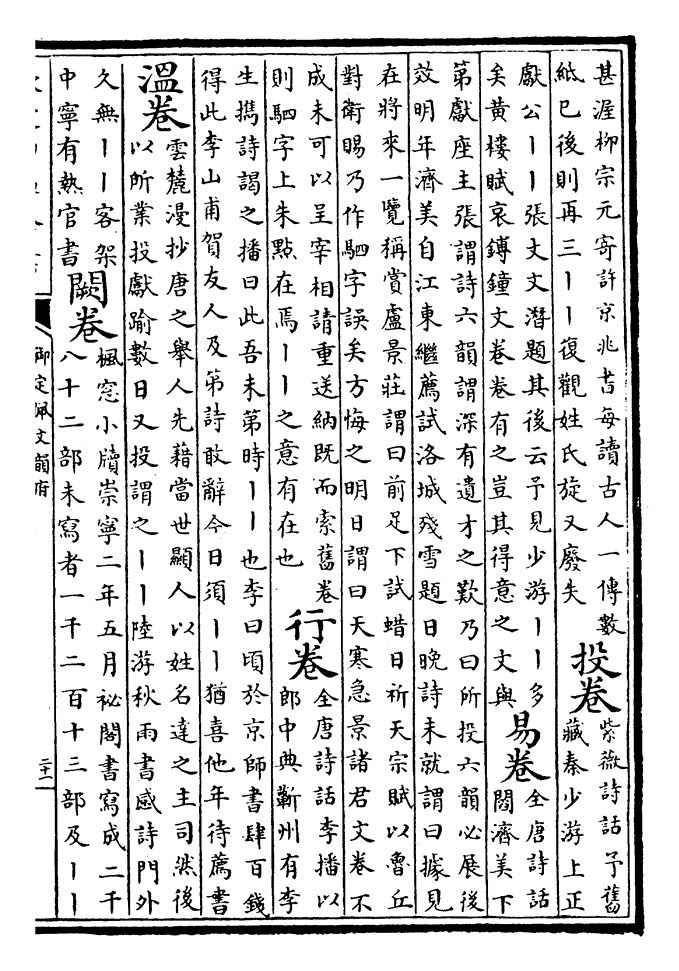 甚涯柳宗元寄許京兆書每讀古人一傳數
紙已後則再三丨丨復觀姓氏旋又廢失
投卷
紫薇詩話予舊
藏秦少游上正
獻公丨丨張丈文潛題其後云予見少游丨丨多
矣黄樓賦哀鎛鐘文卷卷有之豈其得意之文與
易卷
全唐詩話
閻濟美下
第獻座主張謂詩六韻謂深有遺才之歎乃曰所投六韻必展後
效明年濟美自江東繼薦試洛城殘雪題日晚詩未就謂曰據見
在將來一覽稱賞盧景莊謂曰前足下試蜡日祈天宗賦以魯丘
對衛賜乃作駟字誤矣方悔之明日謂曰天寒急景諸君文卷不
成未可以呈宰相請重送納既而索舊卷
則駟字上朱點在焉丨丨之意有在也
行卷
全唐詩話李播以
郎中典蘄州有李
生擕詩謁之播曰此吾未第時丨丨也李曰頃於京師書肆百錢
得此李山甫賀友人及第詩敢辭今日須丨丨猶喜他年待薦書
溫卷
雲麓漫抄唐之舉人先藉當世顯人以姓名達之主司然後
以所業投獻踰數日又投謂之丨丨陸游秋雨書感詩門外
久無丨丨客架
中寧有熱官書
闕卷
楓窓小牘崇寧二年五月祕閣書寫成二千
八十二部未寫者一千二百十三部及丨丨
御定佩文韻府
二十一